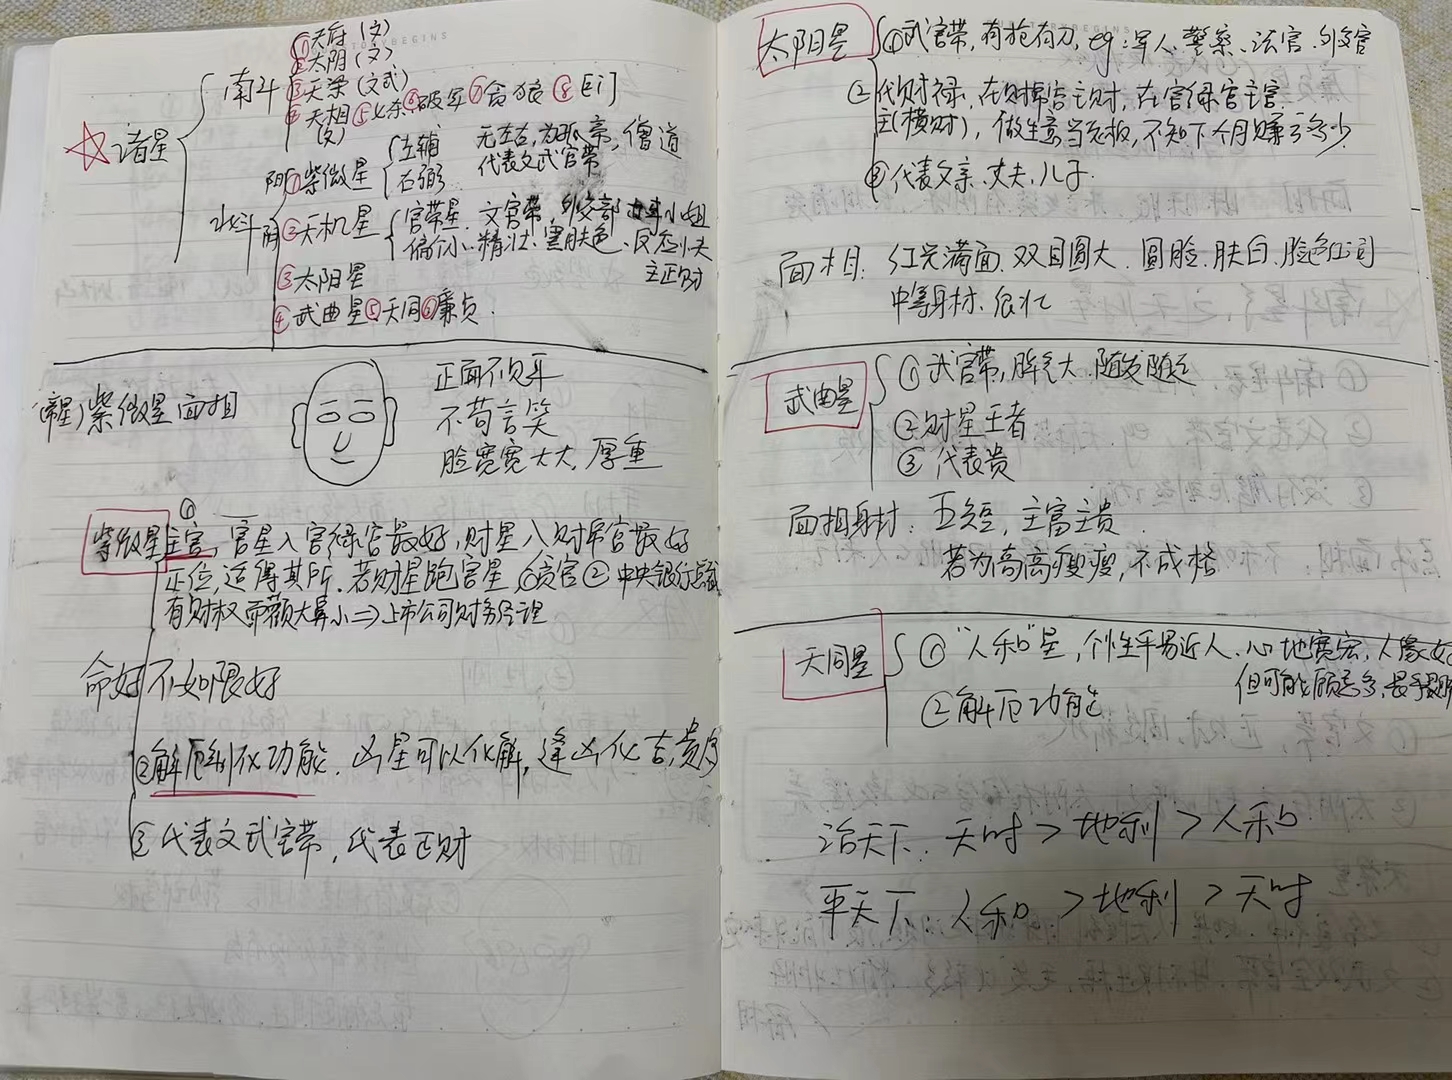 ①天府（文）
②太阴（文）
③天梁（文武）
④天相⑤七杀⑥破军⑦贪狼⑧巨门
（文）
南斗
☆诸星
阳①紫微星
左辅
右弼
无左右，为孤帝，僧道
代表文武官带
北斗
阴②天机星
官带星、文官带，外交部
偏小、精壮、黑肤色、反应快
主正财
③太阳星
④武曲星⑤天同⑥廉贞.
（帝星）紫微星面相
正面不见耳
不苟言笑
脸宽宽大大，厚重
①
紫微星主官，官星入官禄宫最好，财星入财帛宫最好
正位，适得其所.若财星跑官星，①贪官②中央银行总裁
有财权 而颧大鼻小=>上市公司财务经理
命好不如限好
②解厄制化功能.凶星可以化解，逢凶化吉，贵多
③代表文武官带，代表正财
太阳星
①武官带，有枪有刀，eg：军人、警察、法官、外交官
②代财禄，在财帛宫主财，在官禄宫主官
主（横财），做生意当老板，不知下个月赚多少
③代表父亲、丈夫、儿子.
面相：红光满面、双目圆大、圆脸、肤白、脸色红润
中等身材、很壮
武曲星
①武官带，脾气大、随发随过
②财星王者
③代表贵
面相身材：五短，主富主贵
若为高高瘦瘦，不成格
天同星
①“人和”星，个性平易近人、心地宽宏、人缘好
但可能顾忌多，
②解厄功能
治天下：天时>地利>人和
平天下：人和>地利>天时